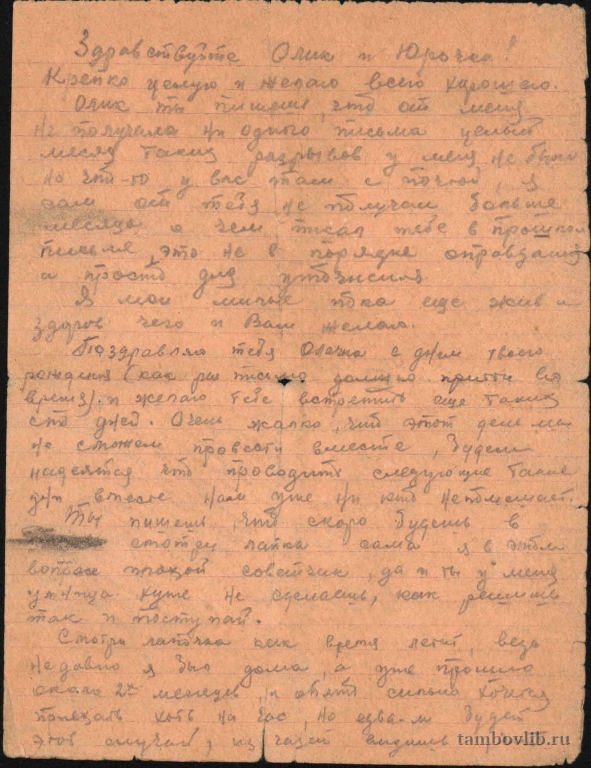 Здравствуйте Олик и Юрочка!
Крепко целую и желаю всего хорошего.
Олик ты пишешь, что от меня
не получала ни одного письма целый
месяц таких разрывов у меня не было
но что-то у вас там с почтой, я
сам от тебя не получал больше
месяца о чем писал тебе в прошлом
письме, это не в порядке оправдания
а просто для уточнения.
Я мои милые пока еще жив и
здоров чего и Вам желаю.
Поздравляю тебя Олечка с днем твоего
рождения (как раз письмо должно притти во
время). и желаю тебе встретить еще таких
сто дней. Очень жалко, что этот день мы
не сможем провести вместе, будем
надеятся что проводить следующие такие
дни вместе нам уже ни кто не помешает.
Ты пишешь, что скоро будешь в
смотри лапка сама я в этом
вопросе плохой советчик, да и ты у меня
умница хуже не сделаешь, как решишь
так и поступай.
Смотри лапочка как время летит, ведь
недавно я был дома, а уже прошло
около 2х месяцев, и опять сильно хочется
приехать хоть на час, но едва-ли будет
этот случай,
tambovlib.ru